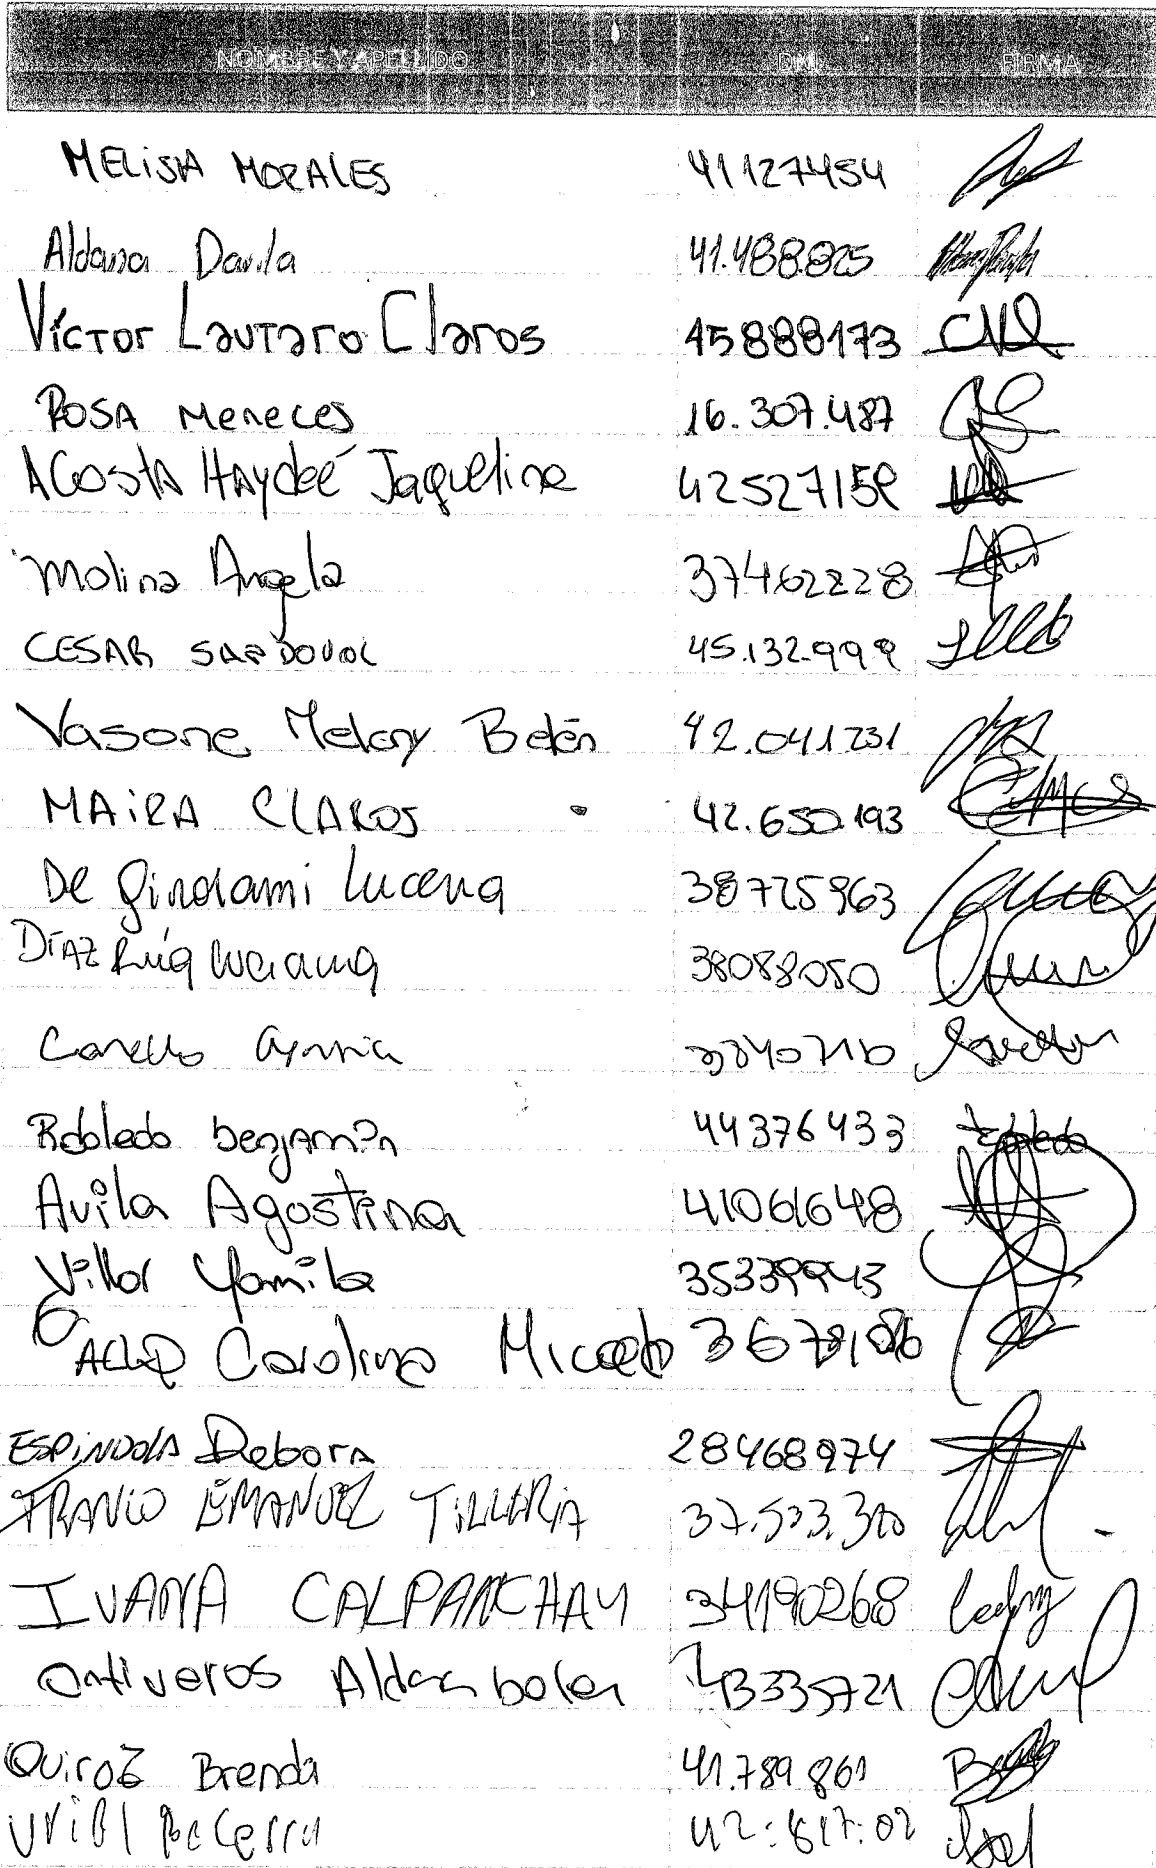 NOMBRE Y APELLIDO DNI FIRMA
MELISA MORALES 41127454
Aldana Davila 41.488.825
Víctor Lautaro Claros 45888173
ROSA Meneces 16.307.487
ACostA HAydeé Jaqueline 42527159
Molina Angela 37462228
CESAR SANDOVAL 45.132.999
Vasone Melany Belén 42.041231
MAiRA CLAROS 42.650.193
De Girolami Lucena 38725963
DíAZ Luciana 38088050
Robledo benjamín 44376433
Avila Agostina 41061648
Villar Yamila 35339943
Carolina Micaela
ESPiNDOLA Debora 28468974
FRANCO EMANUEL TILLERIA 37.533.380
IVANA CALPANCHAY 34190268
Ontiveros Aldana belen 43335721
Quiroz Brenda 41.789.861
Uriel Becerra